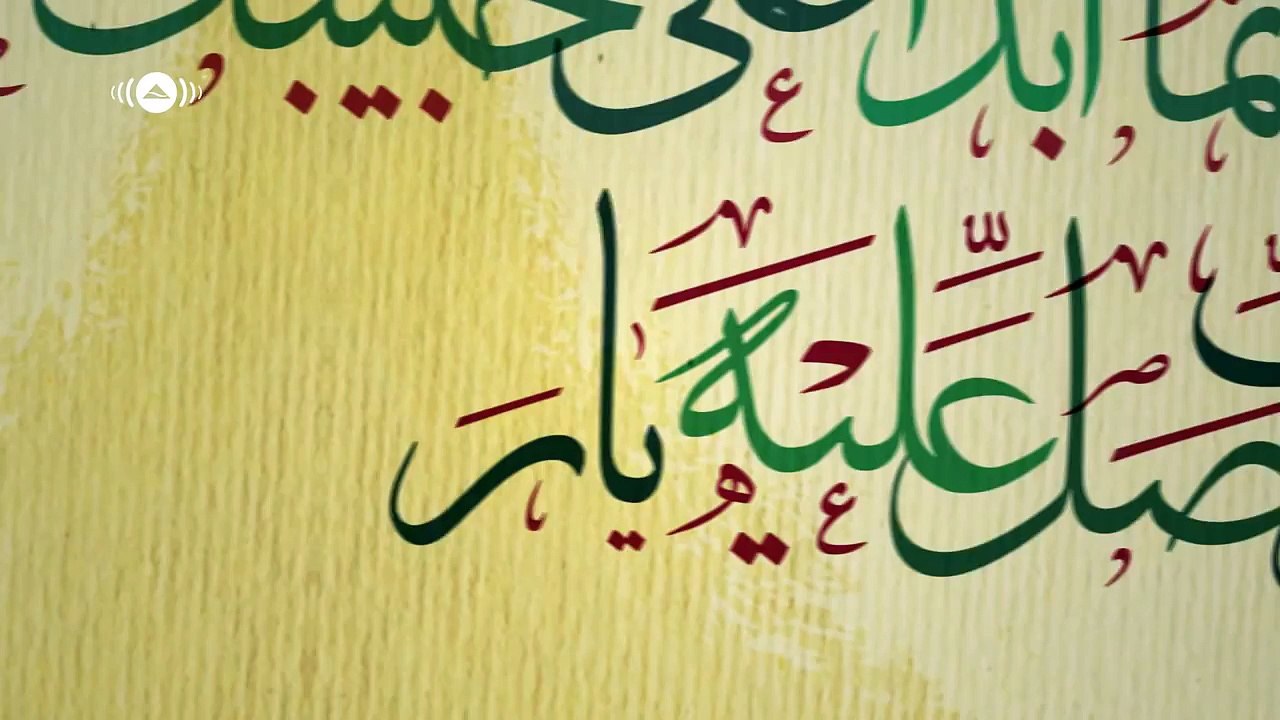 ـما أبدا على حبيبك
صَلِّ عَلَيْهِ يَا رَ